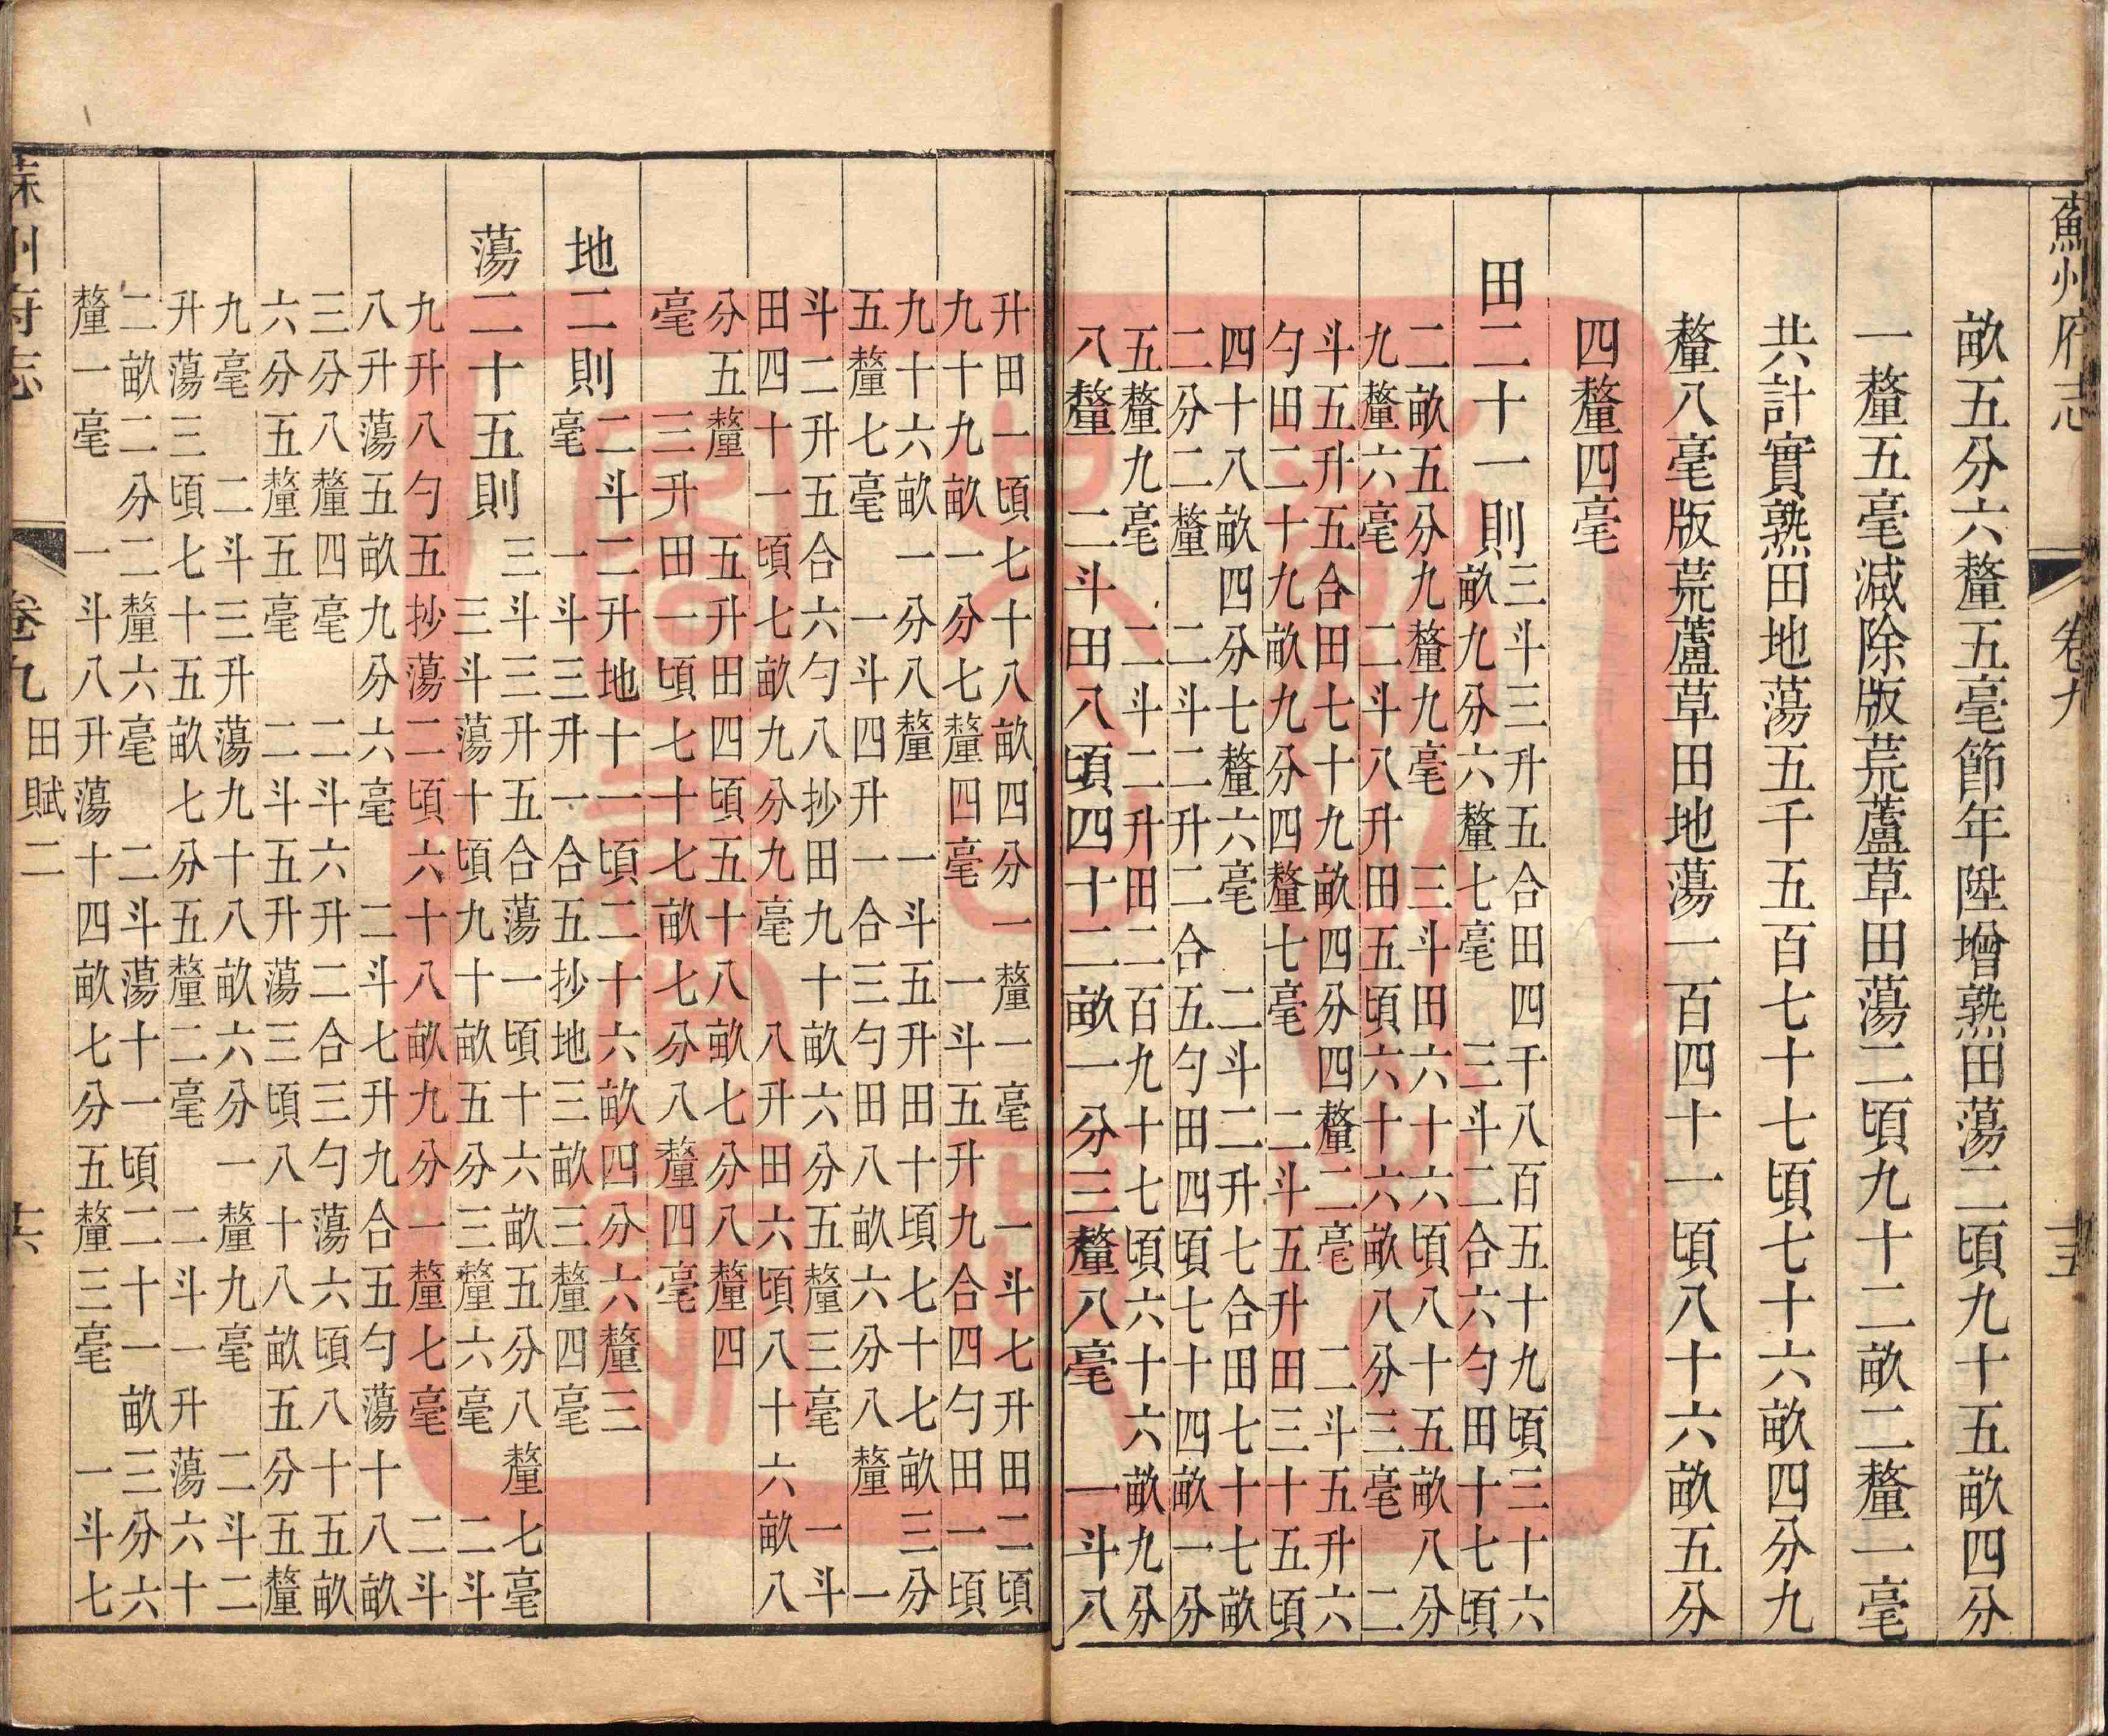 蘇州府志 卷九 十五
畝五分六釐五毫節年陞增熟田蕩二頃九十五畝四分
一釐五毫減除版荒蘆草田蕩二頃九十二畝二釐一毫
共計實熟田地蕩五千五百七十七頃七十六畝四分九
釐八毫版荒蘆草田地蕩一百四十一頃八十六畝五分
四釐四毫
田二十一則
三斗三升五合田四千八百五十九頃三十六
畝九分六釐七毫 三斗二合六勺田十七頃
二畝五分九釐九毫 三斗田六十六頃八十五畝八分
九釐六毫 二斗八升田五頃六十六畝八分三毫 二
斗五升五合田七十九畝四分四釐二毫 二斗五升六
勺田二十九畝九分四釐七毫 二斗五升田三十五頃
四十八畝四分七釐六毫 二斗二升七合田七十七畝
二分二釐 二斗二升二合五勺田四頃七十四畝一分
五釐九毫 二斗二升田二百九十七頃六十六畝九分
八釐 二斗田八頃四十二畝一分三釐八毫 一斗八
升田一頃七十八畝四分一釐一毫 一斗七升田二頃
九十九畝一分七釐四毫 一斗五升九合四勺田一頃
九十六畝一分八釐 一斗五升田十頃七十七畝三分
五釐七毫 一斗四升一合三勺田八畝六分八釐 一
斗二升五合六勺八抄田九十畝六分五釐三毫 一斗
田四十一頃七畝九分九毫 八升田六頃八十六畝八
分五釐 五升田四頃五十八畝七分八釐四
毫 三升田一頃七十七畝七分八釐四毫
地二則
二斗二升地十一頃二十六畝四分六釐三
毫 一斗三升一合五抄地三畝三釐四毫
蕩二十五則
三斗三升五合蕩一頃十六畝五分八釐七毫
三斗蕩十頃九十畝五分三釐六毫 二斗
九升八勺五抄蕩二頃六十八畝九分一釐七毫 二斗
八升蕩五畝九分六毫 二斗七升九合五勺蕩十八畝
三分八釐四毫 二斗六升二合三勺蕩六頃八十五畝
六分五釐五毫 二斗五升蕩三頃八十八畝五分五釐
九毫 二斗三升蕩九十八畝六分一釐九毫 二斗二
升蕩三頃七十五畝七分五釐二毫 二斗一升蕩六十
二畝二分二釐六毫 二斗蕩十一頃二十一畝三分六
釐一毫 一斗八升蕩十四畝七分五釐三毫 一斗七
蘇州府志 卷九 田賦二 十六